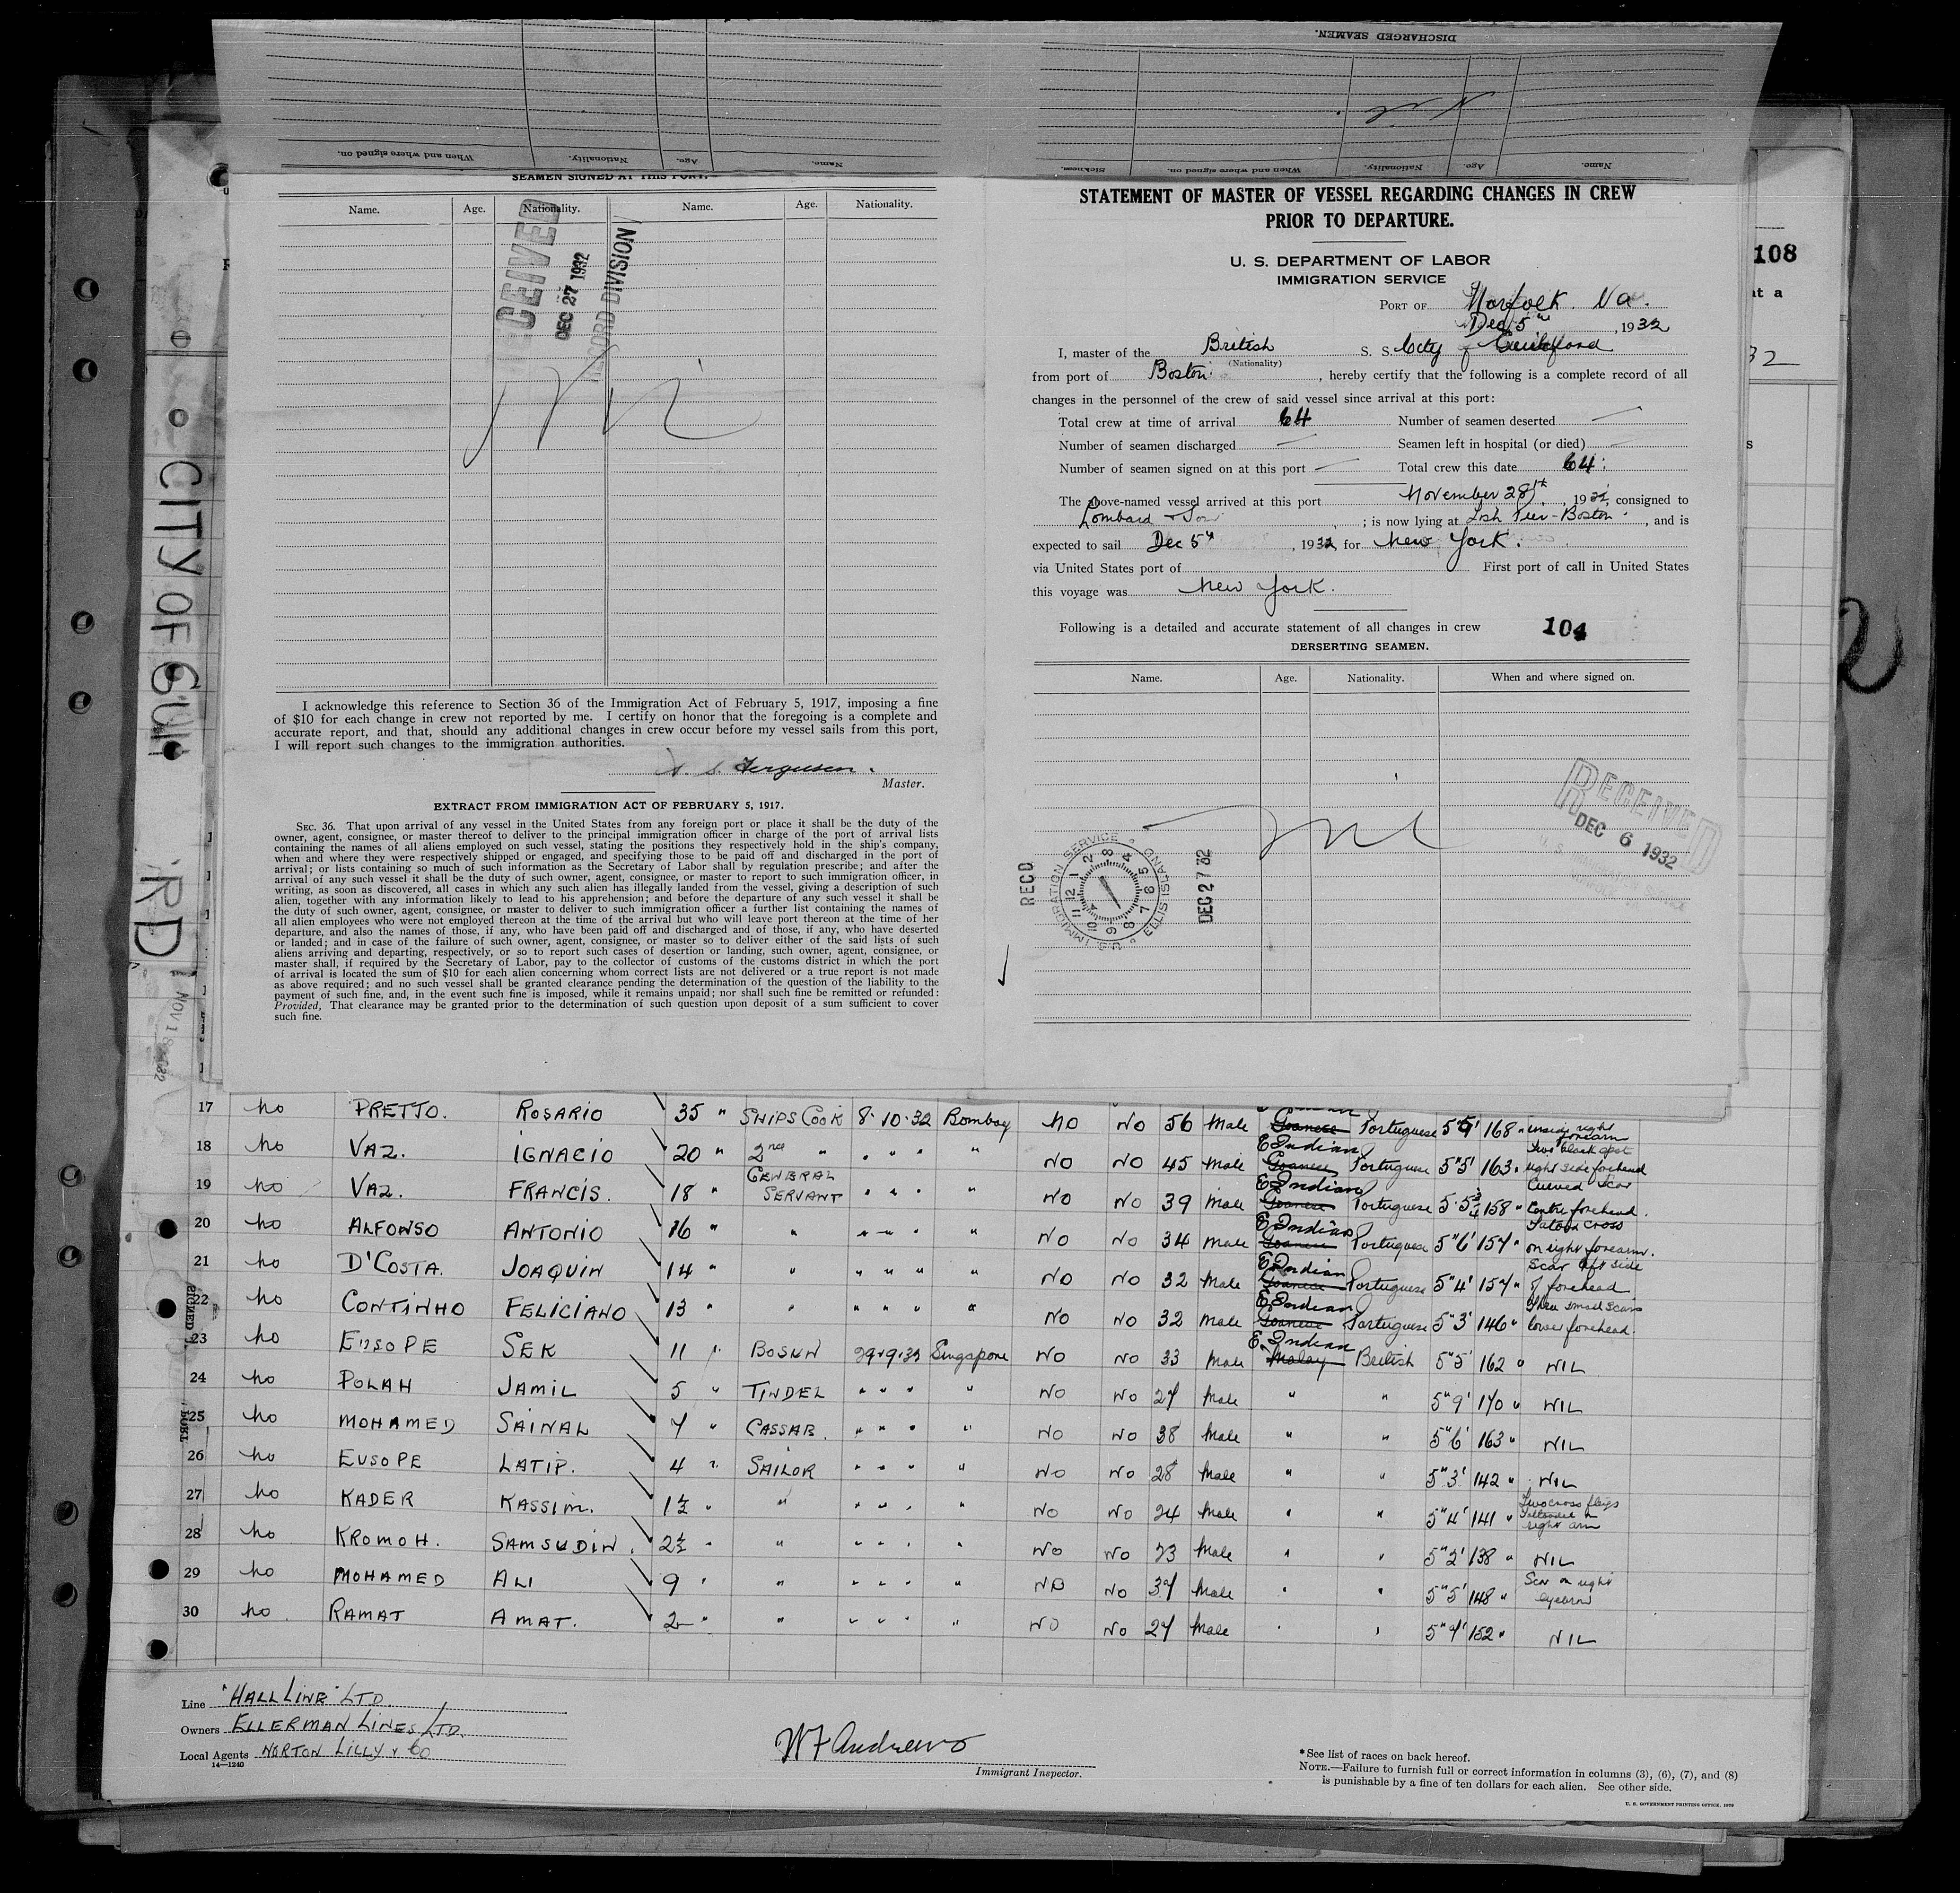 DISCHARGED SEAMEN.
When and where signed on. Nationality. Age. Name.
Sickness. When and where signed on. Nationality. Age. Name.
SEAMEN SIGNED AT THIS PORT.
Name. Age. Nationality. Name. Age. Nationality.
RECEIVED
DEC 27 1932
RECORD DIVISION
Nil
I acknowledge this reference to Section 36 of the Immigration Act of February 5, 1917, imposing a fine
of $10 for each change in crew not reported by me. I certify on honor that the foregoing is a complete and
accurate report, and that, should any additional changes in crew occur before my vessel sails from this port,
I will report such changes to the immigration authorities.
Ferguson.
Master.
EXTRACT FROM IMMIGRATION ACT OF FEBRUARY 5, 1917.
SEC. 36. That upon arrival of any vessel in the United States from any foreign port or place it shall be the duty of the
owner, agent, consignee, or master thereof to deliver to the principal immigration officer in charge of the port of arrival lists
containing the names of all aliens employed on such vessel, stating the positions they respectively hold in the ship's company,
when and where they were respectively shipped or engaged, and specifying those to be paid off and discharged in the port of
arrival; or lists containing so much of such information as the Secretary of Labor shall by regulation prescribe; and after the
arrival of any such vessel it shall be the duty of such owner, agent, consignee, or master to report to such immigration officer, in
writing, as soon as discovered, all cases in which any such alien has illegally landed from the vessel, giving a description of such
alien, together with any information likely to lead to his apprehension; and before the departure of any such vessel it shall be
the duty of such owner, agent, consignee, or master to deliver to such immigration officer a further list containing the names of
all alien employees who were not employed thereon at the time of the arrival but who will leave port thereon at the time of her
departure, and also the names of those, if any, who have been paid off and discharged and of those, if any, who have deserted
or landed; and in case of the failure of such owner, agent, consignee, or master so to deliver either of the said lists of such
aliens arriving and departing, respectively, or so to report such cases of desertion or landing, such owner, agent, consignee, or
master shall, if required by the Secretary of Labor, pay to the collector of customs of the customs district in which the port
of arrival is located the sum of $10 for each alien concerning whom correct lists are not delivered or a true report is not made
as above required; and no such vessel shall be granted clearance pending the determination of the question of the liability to the
payment of such fine, and, in the event such fine is imposed, while it remains unpaid; nor shall such fine be remitted or refunded:
Provided, That clearance may be granted prior to the determination of such question upon deposit of a sum sufficient to cover
such fine.
STATEMENT OF MASTER OF VESSEL REGARDING CHANGES IN CREW
PRIOR TO DEPARTURE.
U. S. DEPARTMENT OF LABOR
IMMIGRATION SERVICE
PORT OF Norfolk. Va.
Dec 5th, 1932
I, master of the British S. S. City of Guildford
(Nationality)
from port of Boston, hereby certify that the following is a complete record of all
changes in the personnel of the crew of said vessel since arrival at this port:
Total crew at time of arrival 64 Number of seamen deserted —
Number of seamen discharged — Seamen left in hospital (or died) —
Number of seamen signed on at this port — Total crew this date 64
The above-named vessel arrived at this port November 28th, 1932 consigned to
Lombard & Son; is now lying at Fish Pier-Boston, and is
expected to sail Dec 5th, 1932, for New York.
via United States port of First port of call in United States
this voyage was New York.
Following is a detailed and accurate statement of all changes in crew 104
DERSERTING SEAMEN.
Name. Age. Nationality. When and where signed on.
Nil
RECEIVED
DEC 6 1932
RECD
U.S. IMMIGRATION SERVICE ELLIS ISLAND
DEC 27 32
108
at a
32
CITY OF GUI RD
NOV 18 1932
17 no PRETTO. ROSARIO 35 " SHIPS COOK 8.10.32 Bombay NO NO 56 Male Goanese Portuguese 5"9' 168 " inside right forearm
18 no VAZ. IGNACIO 20 " 2nd " " " " " NO NO 45 Male E Indian Goanese Portuguese 5"5' 163 " Two black spot right side forehead
19 no VAZ. FRANCIS. 18 " GENERAL SERVANT " " " " NO NO 39 Male E Indian Goanese Portuguese 5.5 3/4 158 " Curved Scar Centre forehead.
20 no ALFONSO ANTONIO 16 " " " " " " NO NO 34 Male E Indian Goanese Portuguese 5"6' 157 " Tatoo cross on right forearm.
21 no D'COSTA. JOAQUIN 14 " " " " " " NO NO 32 Male E Indian Goanese Portuguese 5"4' 157 " Scar left side of forehead
22 no CONTINHO FELICIANO 13 " " " " " " NO NO 32 Male E Indian Goanese Portuguese 5"3' 146 " Three small scars lower forehead.
23 no EUSOPE SEK 11 " BOSUN 29.9.32 Singapore NO NO 33 Male E. Indian Malay British 5"5' 162 " NIL
24 no POLAH JAMIL 5 " TINDEL " " " " NO NO 27 Male " " 5"9' 170 " NIL
25 no MOHAMED SAINAL 7 " CASSAB. " " " " NO NO 38 Male " " 5"6' 163 " NIL
26 no EUSOPE LATIP. 4 " SAILOR " " " " NO NO 28 Male " " 5"3' 142 " NIL
27 no KADER KASSIM. 1½ " " " " " " NO NO 24 Male " " 5"4' 141 " Two cross flags Tattooed on right arm
28 no KROMOH. SAMSUDIN. 2½ " " " " " " NO NO 23 Male " " 5"2' 138 " NIL
29 no MOHAMED ALI 9 " " " " " " NO NO 37 Male " " 5"5' 148 " Scar on right eyebrow
30 no RAMAT AMAT. 2 " " " " " " NO NO 27 Male " " 5"7' 152 " NIL
Line "HALL LINE" LTD.
Owners ELLERMAN LINES LTD.
Local Agents NORTON LILLY & CO
14—1240
W F Andrews
Immigrant Inspector.
*See list of races on back hereof.
NOTE.—Failure to furnish full or correct information in columns (3), (6), (7), and (8)
is punishable by a fine of ten dollars for each alien. See other side.
U. S. GOVERNMENT PRINTING OFFICE